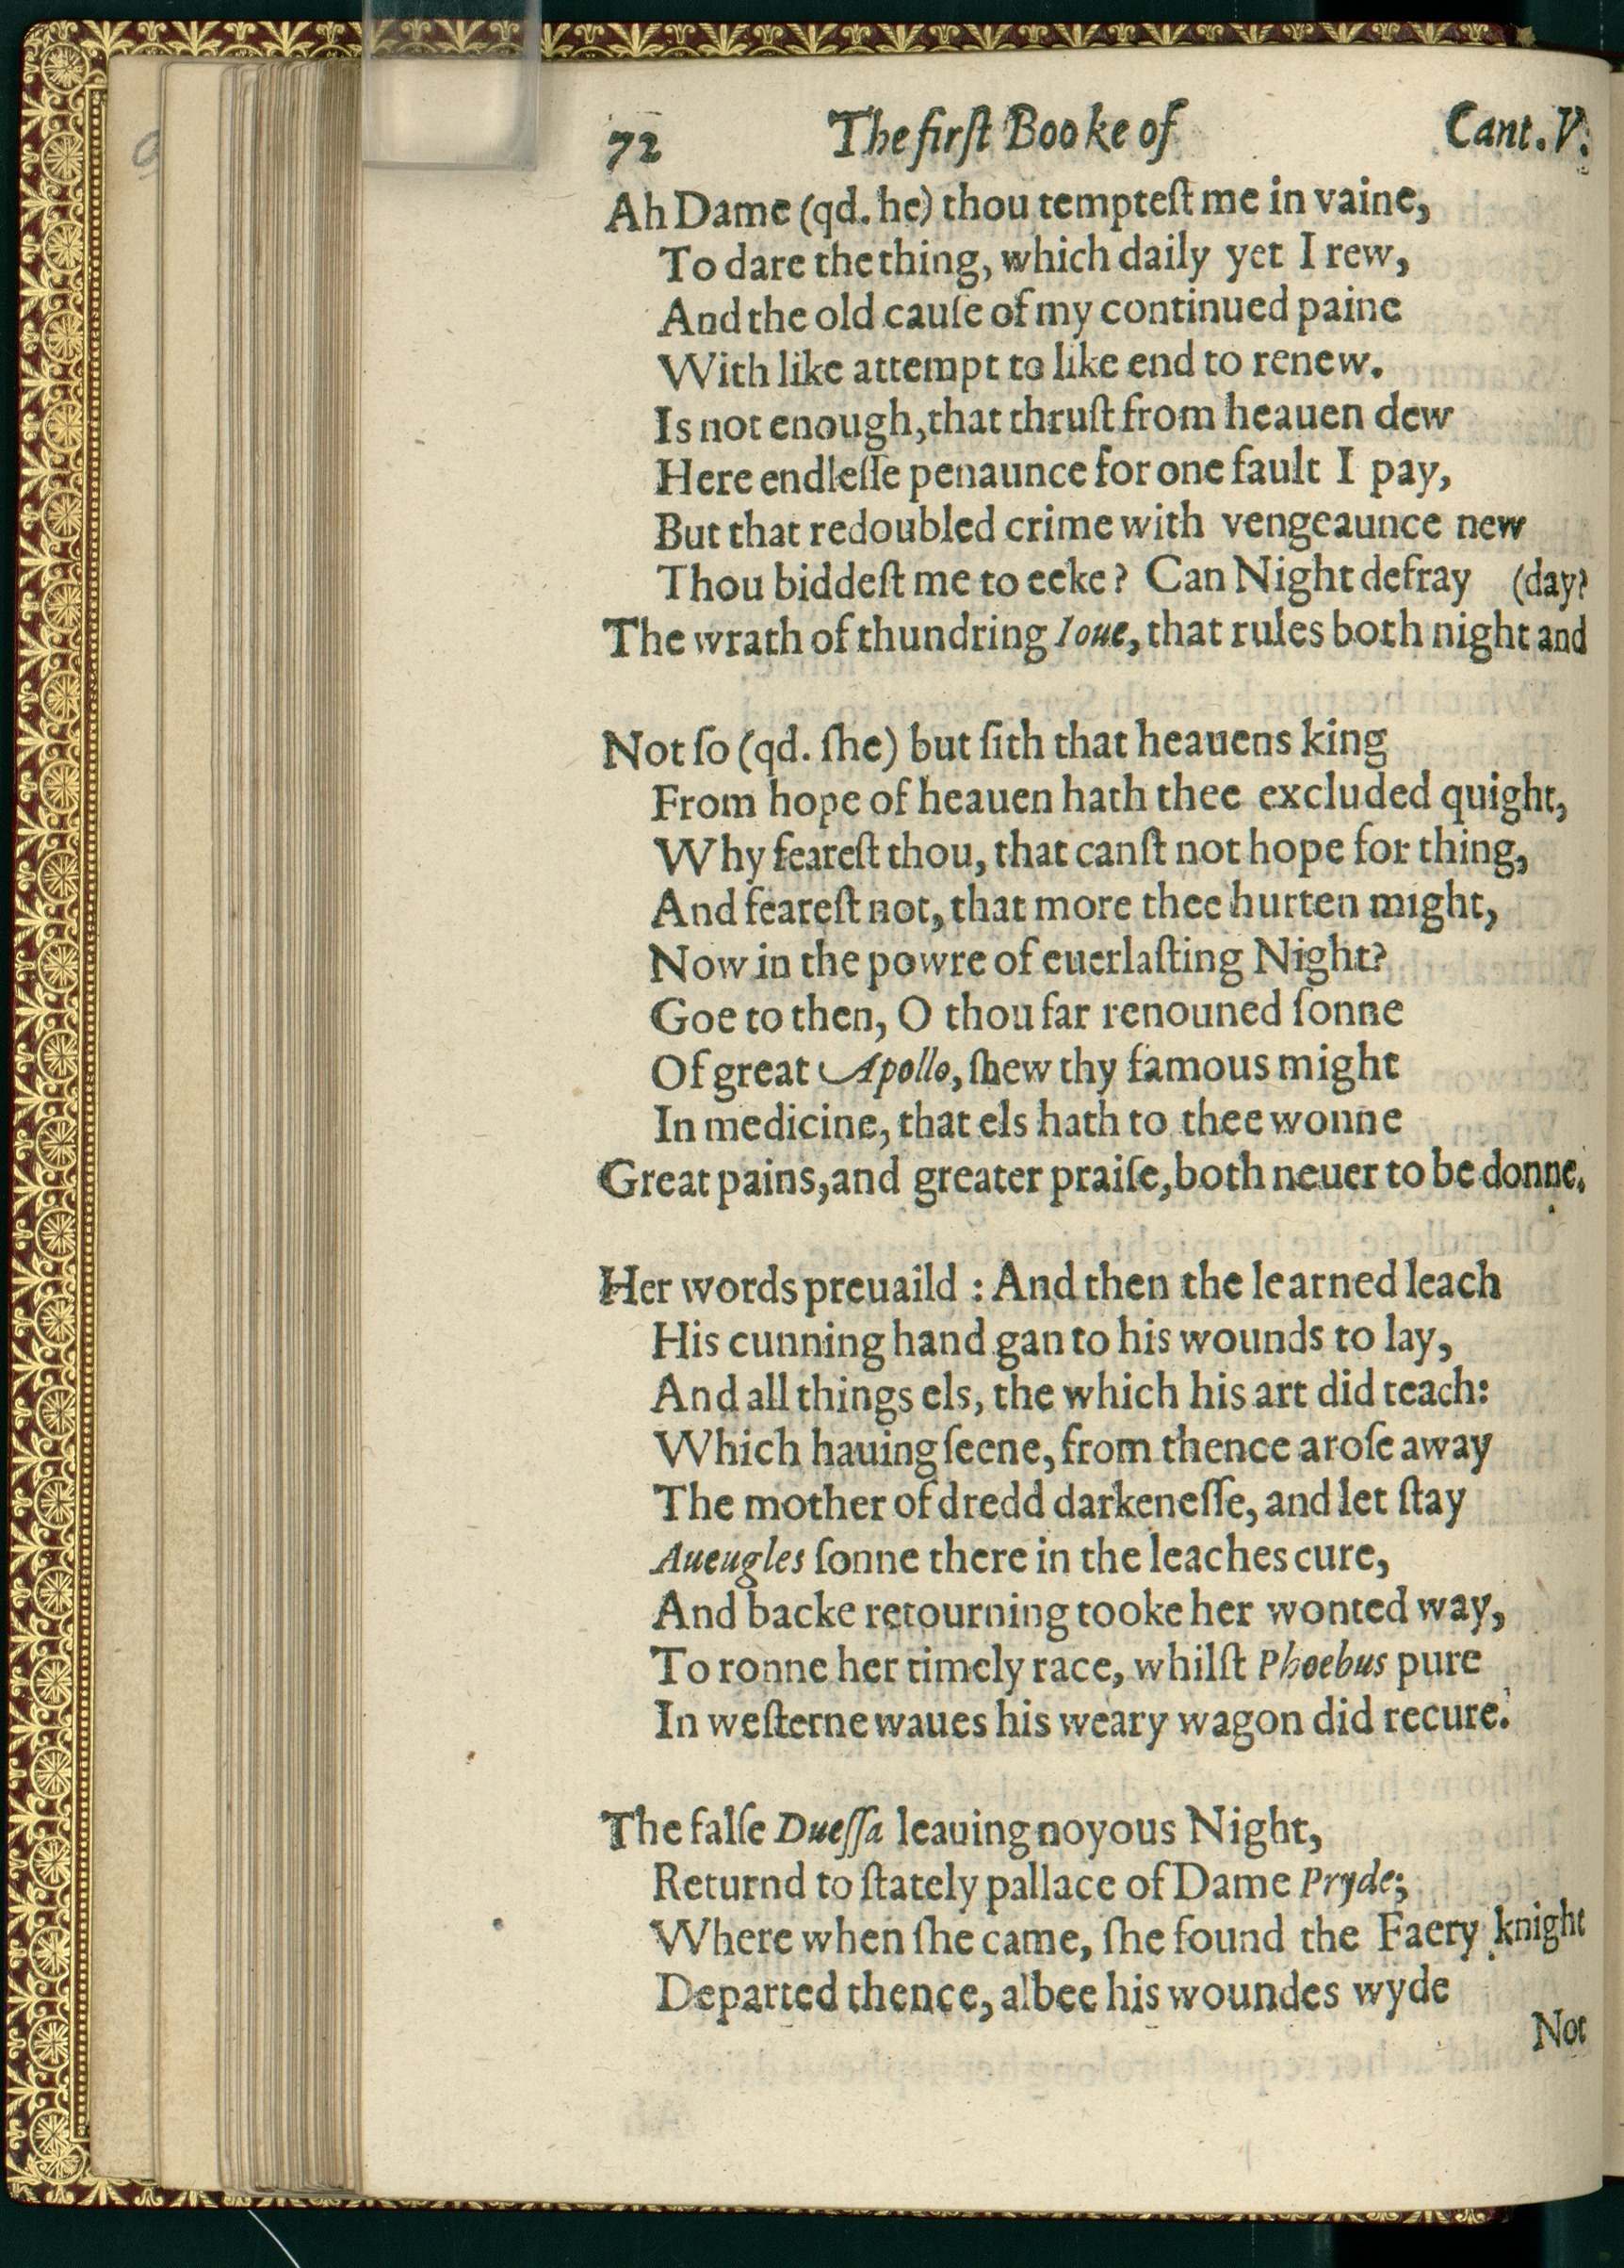 72 The first Booke of Cant. V.
Ah Dame (qd. he) thou tempteſt me in vaine,
To dare the thing, which daily yet I rew,
And the old cauſe of my continued paine
With like attempt to like end to renew.
Is not enough, that thruſt from heauen dew
Here endleſſe penaunce for one fault I pay,
But that redoubled crime with vengeaunce new
Thou biddeſt me to eeke? Can Night defray (day?
The wrath of thundring Ioue, that rules both night and
Not ſo (qd. ſhe) but ſith that heauens king
From hope of heauen hath thee excluded quight,
Why feareſt thou, that canſt not hope for thing,
And feareſt not, that more thee hurten might,
Now in the powre of euerlaſting Night?
Goe to then, O thou far renouned ſonne
Of great Apollo, ſhew thy famous might
In medicine, that els hath to thee wonne
Great pains, and greater praiſe, both neuer to be donne.
Her words preuaild : And then the learned leach
His cunning hand gan to his wounds to lay,
And all things els, the which his art did teach:
Which hauing ſeene, from thence aroſe away
The mother of dredd darkeneſſe, and let ſtay
Aueugles ſonne there in the leaches cure,
And backe retourning tooke her wonted way,
To ronne her timely race, whilſt Phoebus pure
In weſterne waues his weary wagon did recure.
The falſe Dueſſa leauing noyous Night,
Returnd to ſtately pallace of Dame Pryde;
Where when ſhe came, ſhe found the Faery knight
Departed thence, albee his woundes wyde
Not